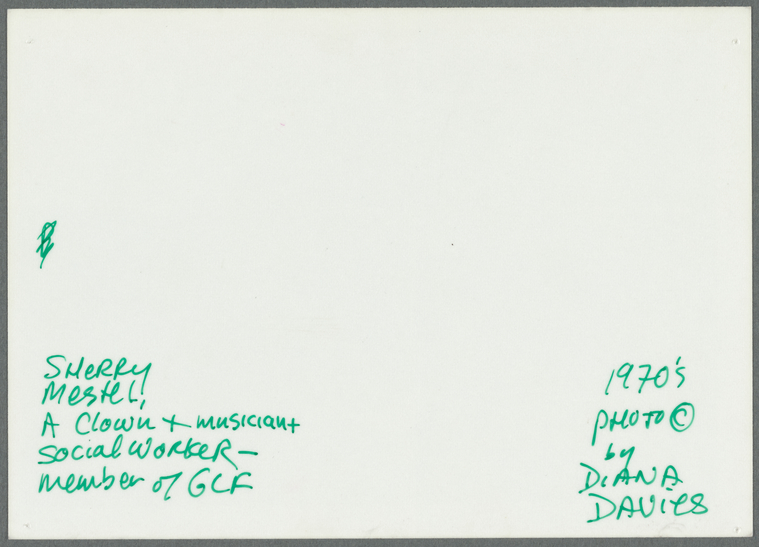 SHERRY
Mestel,
A Clown + musician +
social WORKER —
member of GLF
1970's
PHOTO ©
by
DIANA
DAVIES